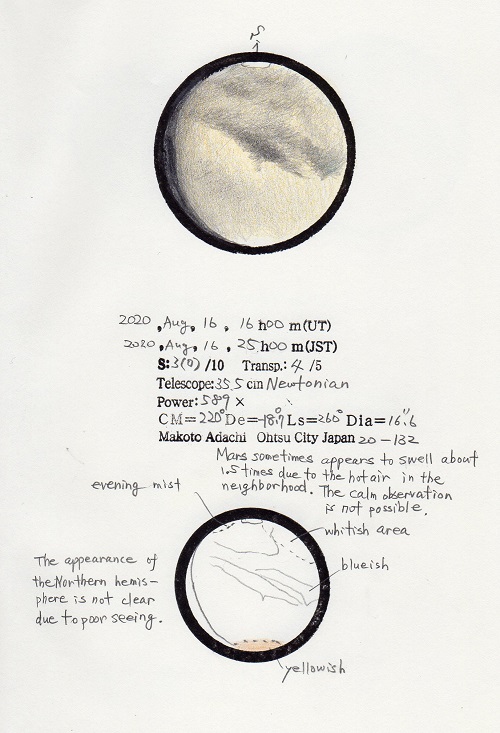 S
2020, Aug, 16, 16 h00 m(UT)
2020, Aug, 16, 25 h00 m(JST)
S: 3(0) /10 Transp.: 4 /5
Telescope: 35.5 cm Newtonian
Power: 589 ×
CM=220° De=-18.9° Ls=260° Dia=16.6"
Makoto Adachi Ohtsu City Japan 20-132
Mars sometimes appears to swell about
1.5 times due to the hot air in the
neighborhood. The calm observation
is not possible.
evening mist
whitish area
blueish
The appearance of
the Northern hemis-
phere is not clear
due to poor seeing.
yellowish